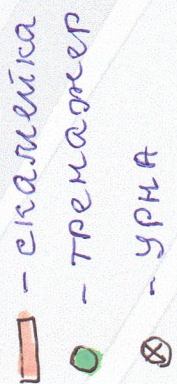 - скамейка
- тренажер
- урна